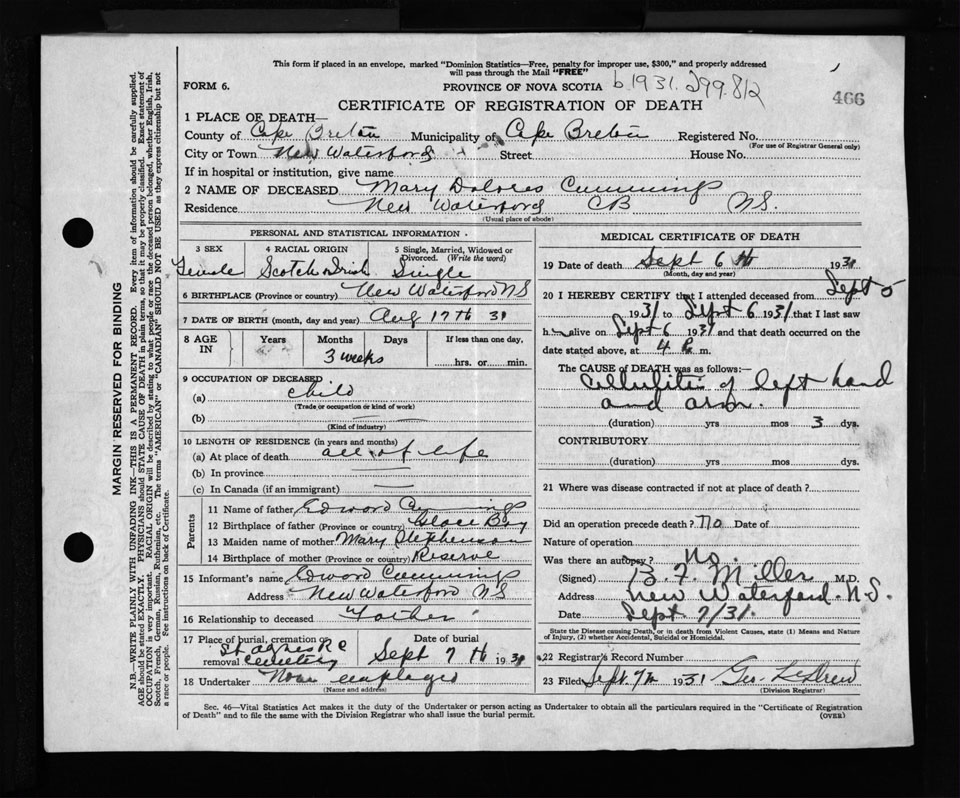 This form if placed in an envelope, marked "Dominion Statistics—Free, penalty for improper use, $300," and properly addressed
will pass through the Mail "FREE"
FORM 6. PROVINCE OF NOVA SCOTIA b 1931. 299.812
CERTIFICATE OF REGISTRATION OF DEATH 466
1 PLACE OF DEATH—
County of Cape Breton Municipality of Cape Breton Registered No.
(For use of Registrar General only)
City or Town New Waterford Street House No.
If in hospital or institution, give name
2 NAME OF DECEASED Mary Dolores Cummings
Residence New Waterford CB NS.
(Usual place of abode)
PERSONAL AND STATISTICAL INFORMATION
3 SEX 4 RACIAL ORIGIN 5 Single, Married, Widowed or
Divorced. (Write the word)
Female Scotch Irish Single
6 BIRTHPLACE (Province or country) New Waterford NS
7 DATE OF BIRTH (month, day and year) Aug 17th 31
8 AGE IN Years Months Days If less than one day,
3 weeks hrs. or min.
9 OCCUPATION OF DECEASED
(a) Child
(Trade or occupation or kind of work)
(b)
(Kind of industry)
10 LENGTH OF RESIDENCE (in years and months)
(a) At place of death all of life
(b) In province
(c) In Canada (if an immigrant)
Parents
11 Name of father Edward Cummings
12 Birthplace of father (Province or country) Glace Bay
13 Maiden name of mother Mary Stephenson
14 Birthplace of mother (Province or country) Reserve
15 Informant's name Edward Cummings
Address New Waterford NS
16 Relationship to deceased Father
17 Place of burial, cremation or removal St Agnes RC cemetery Date of burial Sept 7th 1931
18 Undertaker None employed
(Name and address)
MEDICAL CERTIFICATE OF DEATH
19 Date of death Sept 6th 1931
(Month, day and year)
20 I HEREBY CERTIFY that I attended deceased from Sept 5
1931 to Sept 6 1931 that I last saw
h alive on Sept 6 1931 and that death occurred on
date stated above, at 4 P. m.
The CAUSE of DEATH was as follows:—
Cellulitis of left hand
and arm.
(duration) yrs mos 3 dys.
CONTRIBUTORY
(duration) yrs mos dys.
21 Where was disease contracted if not at place of death?
Did an operation precede death? No Date of
Nature of operation
Was there an autopsy? No.
(Signed) B. F. Miller M.D.
Address New Waterford. N.S.
Date Sept 7/31.
State the Disease causing Death, or in death from Violent Causes, state (1) Means and Nature
of Injury, (2) whether Accidental, Suicidal or Homicidal.
22 Registrar's Record Number
23 Filed Sept. 7th 1931 Geo LeDrew
(Division Registrar)
Sec. 46—Vital Statistics Act makes it the duty of the Undertaker or person acting as Undertaker to obtain all the particulars required in the "Certificate of Registration
of Death" and to file the same with the Division Registrar who shall issue the burial permit. (OVER)
MARGIN RESERVED FOR BINDING
N.B.—WRITE PLAINLY WITH UNFADING INK—THIS IS A PERMANENT RECORD. Every item of information should be carefully supplied.
AGE should be stated EXACTLY. PHYSICIANS should STATE CAUSE OF DEATH in plain terms, so that it may be properly classified. Exact statement of
OCCUPATION is very important. RACIAL ORIGIN will be described by stating to what people or race the deceased person belonged, whether English, Irish,
Scotch, French, German, Russian, Ruthenian, etc. The terms "AMERICAN" or "CANADIAN" SHOULD NOT BE USED as they express citizenship but not
a race or people. See instructions on back of Certificate.